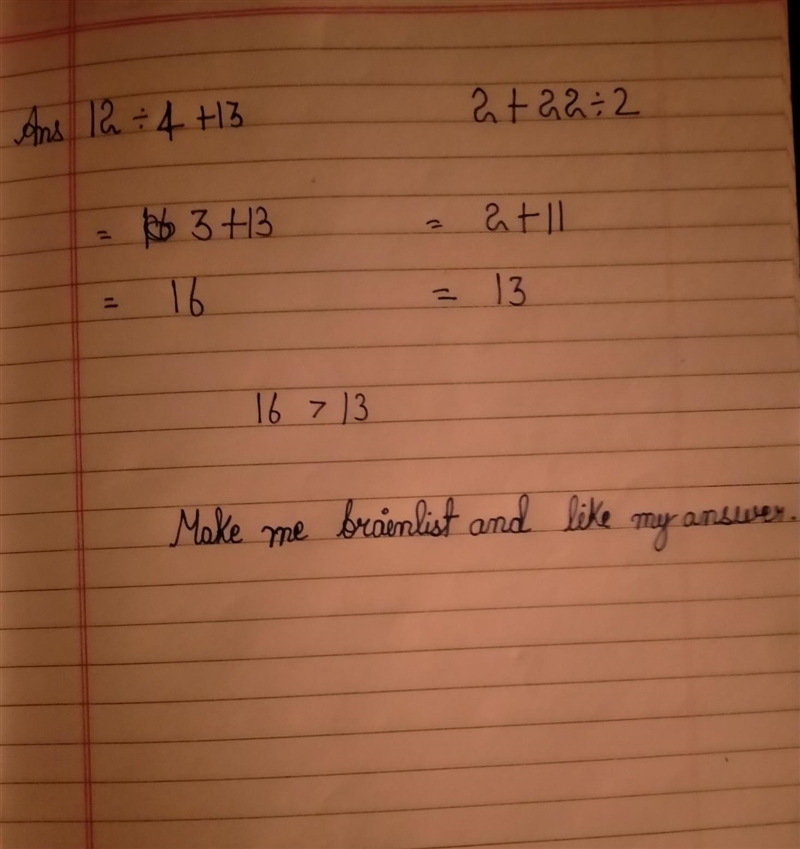 Ans 12 ÷ 4 + 13 2 + 22 ÷ 2
= 3 + 13 = 2 + 11
= 16 = 13
16 > 13
Make me brainlist and like my answer.